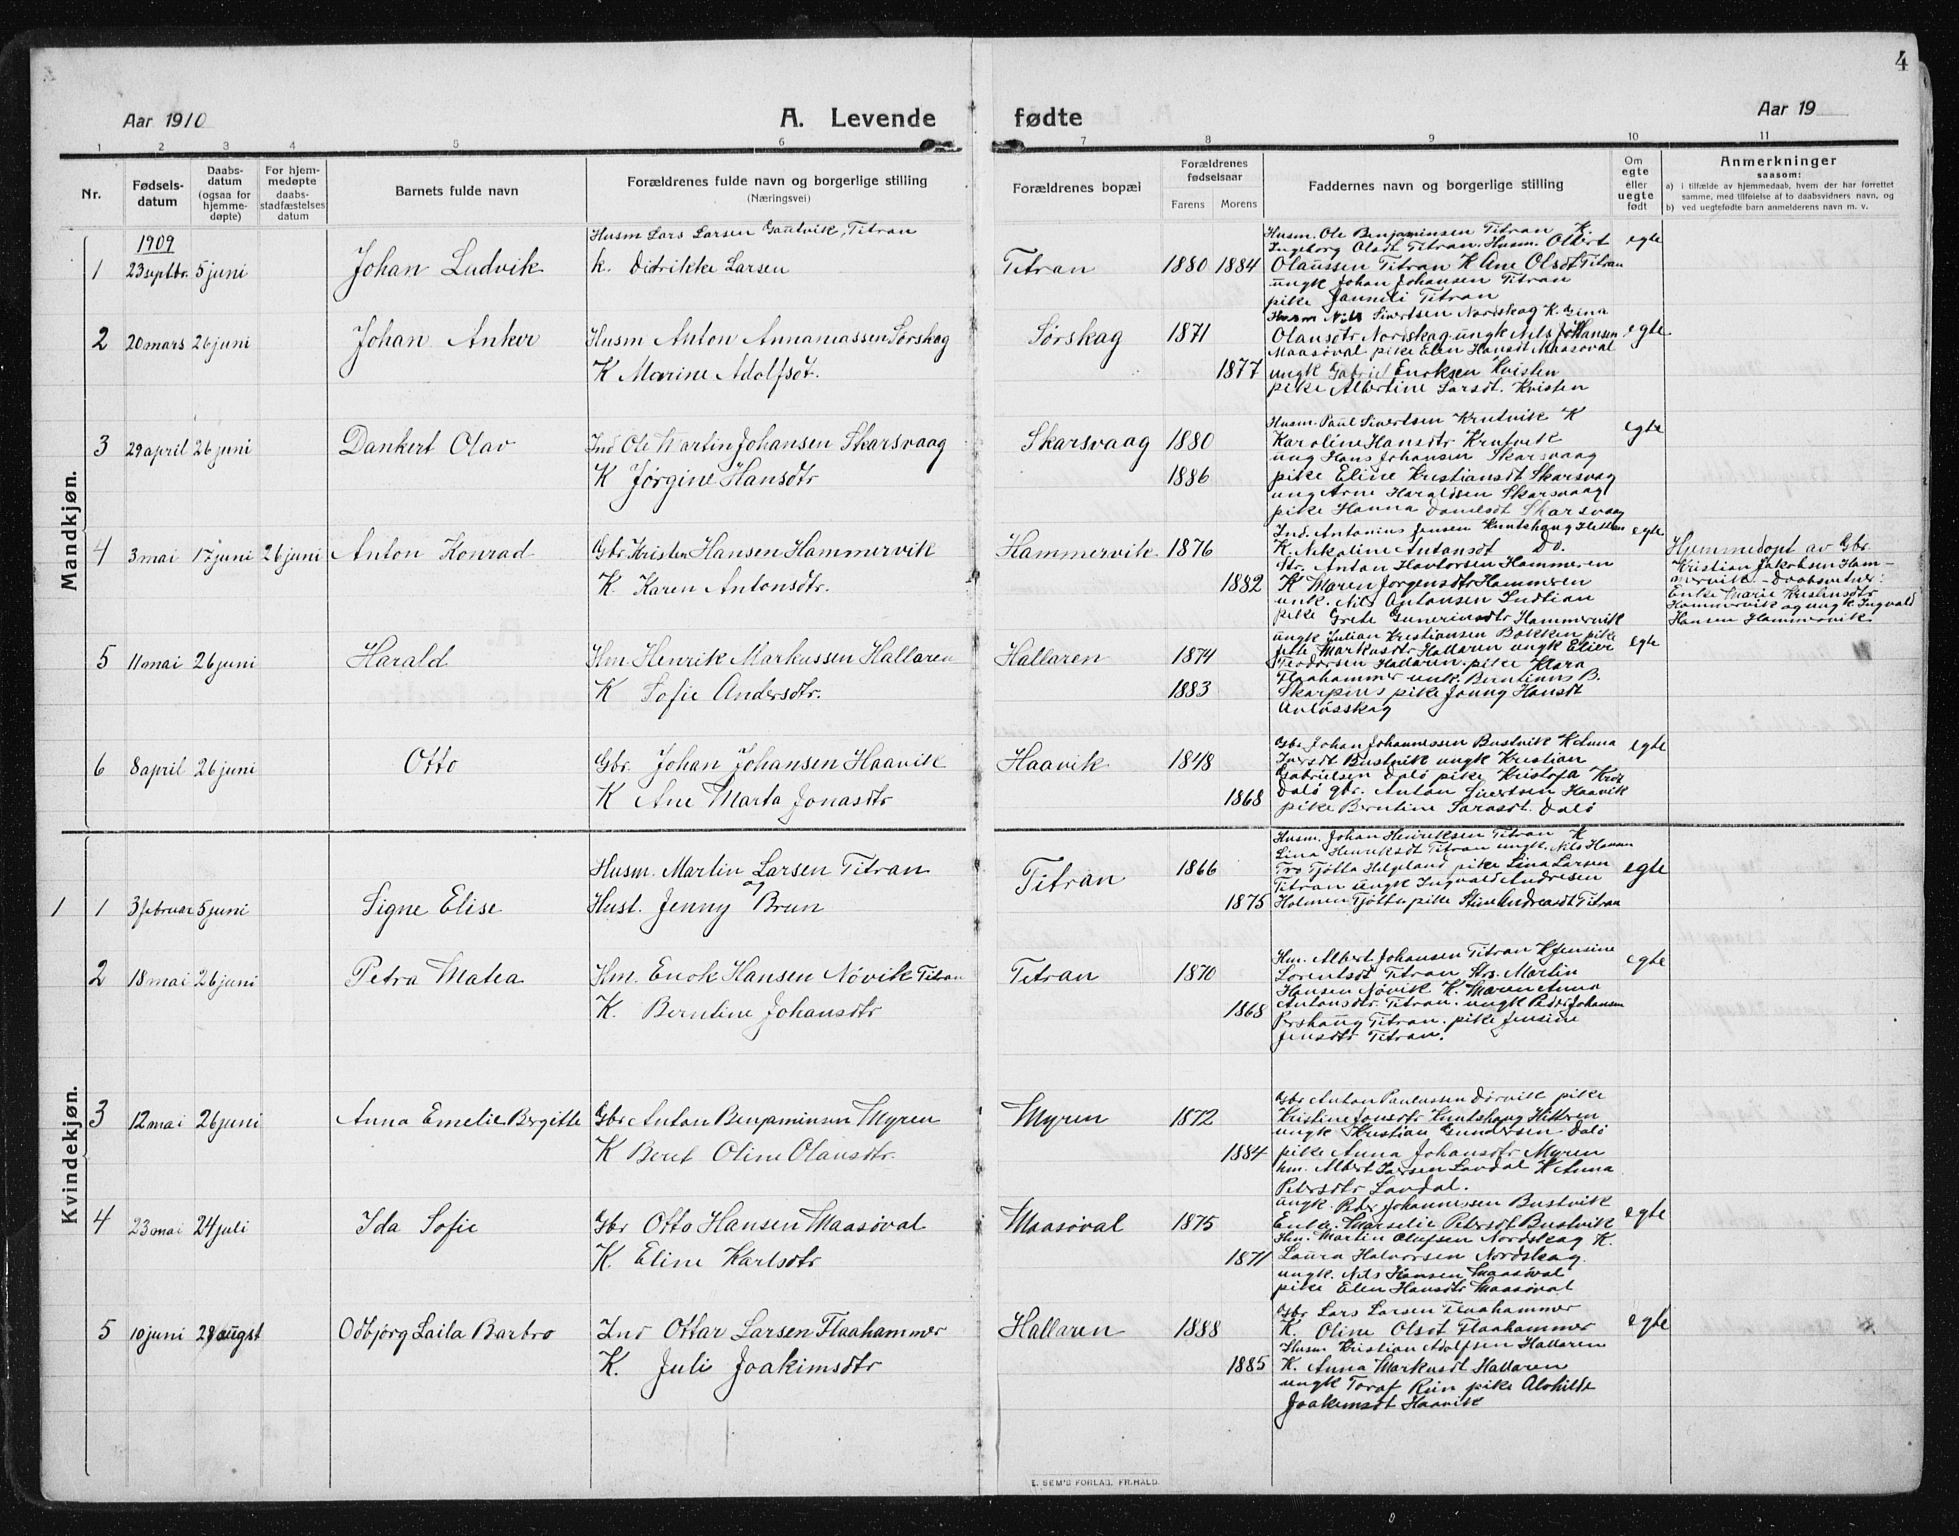 4
Aar 1910
A. Levende fødte
Aar 19
1 2 3 4 5 6 7 8 9 10 11
Nr.
Fødsels-
datum
Daabs-
datum
(ogsaa for
hjemme-
døpte)
For hjem-
medøpte
daabs-
stadfæstelses
datum
Barnets fulde navn
Forældrenes fulde navn og borgerlige stilling
(Næringsvei)
Forældrenes bopæl
Forældrenes
fødselsaar
Farens Morens
Faddernes navn og borgerlige stilling
Om
egte
eller
uegte
født
Anmerkninger
saasom:
a) i tilfælde av hjemmedaab, hvem der har forrettet
samme, med tilføielse af to daabsvidners navn, og
b) ved uegtefødte barn anmelderens navn m. v.
Mandkjøn.
1909
1 23 septbr. 5 juni Johan Ludvik
Husm Lars Larsen Gautvik, Titran
k. Didrikke Larsen
Titran 1880 1884
Husm. Ole Benjaminsen Titran K.
Ingeborg Olsdt Titran. Husm. Oltert
Olaussen Titran K Ane Olsdt Titran
ungk Johan Johansen Titran
pike Titran
egte
2 20 mars 26 juni Johan Anker
Husm Anton Annaniassen Sørskag
K Marine Adolfsdt.
Sørskag 1871
1877
Husm Nils Sivertsen Nordskag K. Gina
Olausdtr Nordskag ungk Nils Johansen
Maasøval pike Elen Hansdt Maasøval
ungk Gabriel Enoksen Kvisten
pike Albertine Larsdt. Kvisten
egte
3 29 april 26 juni Dankert Olav
Ind Ole Martin Johansen Skarsvaag
K Jørgine Hansdtr
Skarsvaag 1880
1886
Husm. Paul Sivertsen Krutvik K
Karoline Hansdtr Krutvik
ung Hans Johansen Skarsvaag
pike Eline Kristiansdt Skarsvag
ung Arne Haraldsen Skarsvaag
pike Hanna Danielsdt Skarsvaag
egte
4 3 mai 17 juni 26 juni Anton Konrad
Gbr Kristen Hansen Hammervik
K. Karen Antonsdtr.
Hammervik 1876
1882
Ind. Antonius Jensen Knutshaug Hitteren
K. Nikoline Antonsdt Do.
Anton Havlorsen Hammeren
K Maren Jørgensdtr Hammeren
unk. Nils Antonsen Indtian
pike Grete Gunerinsdtr Hammervik
egte
Hjemmedøpt av Gbr
Kristian Jakobsen Ham-
mervik. - Daabsvitner:
Enke Marie Kristensdtr
Hammervik og ungk Ingvald
Hansen Hammervik
5 11 mai 26 juni Harald
Hm. Henrik Markussen Hallaren
K Sofie Andersdtr.
Hallaren 1874
1883
ungk Julian Kristiansen Bakken pike
Markusdtr Hallaren ungk Elier
Teodorsen Hallaren. pike Klara
Flaahammer unk. Berntinus B.
Skarpenes pike Jenny Hansdt
Avløsskag
egte
6 8 april 26 juni Otto
Gbr. Johan Johansen Haavik
K Ane Marta Jonasdtr
Haavik 1848
1868
Gbr Johan Johannessen Bustvik K Anna
Iversdt Bustvik ungk Kristian
Gabrielsen Dalø pike Kristofa
Dalø gbr. Anton Sivertsen Haavik
pike Berntine Larsdt. Dalø
egte
Kvindekjøn.
1 1 3 februar 5 juni Signe Elise
Husm. Martin Larsen Titran
og
Hust. Jenny Brun
Titran 1866
1875
Husm. Johan Henriksen Titran K
Lina Henriksdt Titran ungk. Nils Hansen
Tro Tjøtta Helgeland pike Lina Larsen
Titran ungk Ingvald Andresen
Holmen Tjøtta pike Stine Andreasdt Titran
egte
2 18 mai 26 juni Petra Matea
Hm. Enok Hansen Nøvik Titran
K. Berntine Johansdtr
Titran 1870
1868
Hm. Albert Johansen Titran K Jensine
Lorentsdt Titran Hm. Martin
Hansen Nøvik K. Maren Anna
Antonsdtr. Titran. ungk Peder Johansen
Pershaug Titran. pike Jensine
Jensdtr Titran.
egte
3 12 mai 26 juni Anna Emelie Bergitte
Gbr Anton Benjaminsen Myren
K Beret Oline Olausdtr.
Myren 1872
1884
Gbr Anton Paulussen Dørvik pike
Kristine Jonsdtr Knutshaug Hitteren
ungk Kristian Gundersen Dalø
pike Anna Johansdtr Myren
hm. Albert Larsen Lavdal K Anna
Petersdtr Lavdal.
4 23 mai 24 juli Ida Sofie
Gbr Otto Hansen Maasøval
K. Eline Karlsdtr
Maasøval 1875
1871
ungk. Peder Johannessen Bustvik
Enke Marselie Petersdt Bustvik
Hm. Martin Olufsen Nordskag K.
Laura Halvorsen Nordskag.
ungk. Nils Hansen Maasøval
pike Elen Hansdtr Maasøval
egte
5 10 juni 28 augst Odbjørg Laila Barbro
Ind Ottar Larsen Flaahammer
K. Juli Joakimsdtr
Hallaren 1888
1885
Gbr Lars Larsen Flaahammer
K. Oline Olsdt Flaahammer
Husm Kristian Adolfsen Hallaren
K. Anna Markusdt Hallaren
ungk Toraf Riin pike Alvhilde
Joakimsdt Haavik
egte
E. SEM'S FORLAG, FR.HALD.